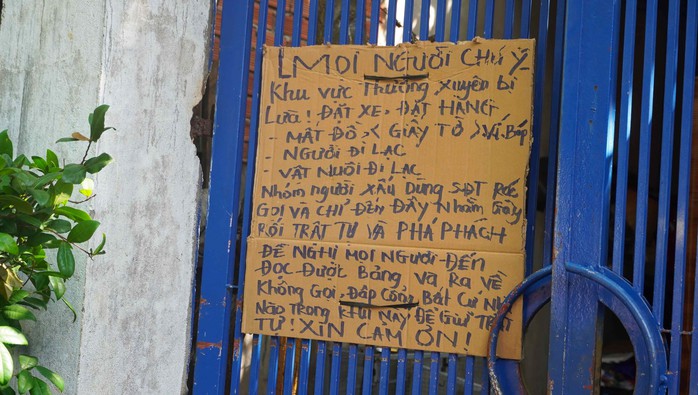 MỌI NGƯỜI CHÚ Ý
Khu vực Thường xuyên bị
Lừa! ĐẶT XE, ĐẶT HÀNG
- MẤT ĐỒ < GIẤY TỜ > Ví Bóp
- NGƯỜI ĐI LẠC
VẬT NUÔI ĐI LẠC
Nhóm người XẤU DÙNG SĐT RÁC
GỌI VÀ CHỈ ĐẾN ĐÂY Nhằm Gây
RỐI TRẬT TỰ VÀ PHÁ PHÁCH
ĐỀ NGHỊ MỌI NGƯỜI ĐẾN
ĐỌC ĐƯỢC BẢNG và RA VỀ
Không Gọi, Đập Cổng Bất Cứ Nhà
Nào Trong KHU NÀY ĐỂ GIỮ TRẬT
TỰ! XIN CẢM ƠN!